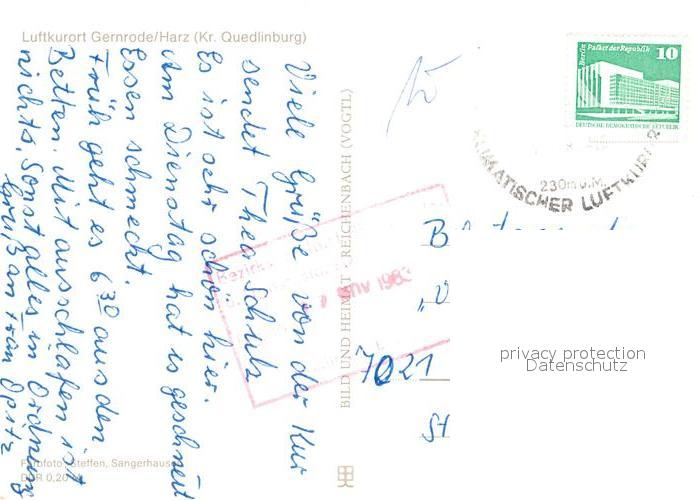 Luftkurort Gernrode/Harz (Kr. Quedlinburg)
Viele Grüße von der Kur
sendet Theo Schulz
Es ist sehr schön hier.
Am Dienstag hat es geschneit
Essen schmeckt.
Früh geht es 6 30 aus den
Betten. Mit ausschlafen ist
nichts. Sonst alles in Ordnung
Gruß an Frau Opitz
Farbfoto: Steffen, Sangerhausen
DDR 0,20
BILD UND HEIMAT · REICHENBACH (VOGTL)
Berlin Palast der Republik
10
DEUTSCHE DEMOKRATISCHE REPUBLIK
KLIMATISCHER LUFTKURORT
230m ü.M.
Bezirks
7021
privacy protection
Datenschutz